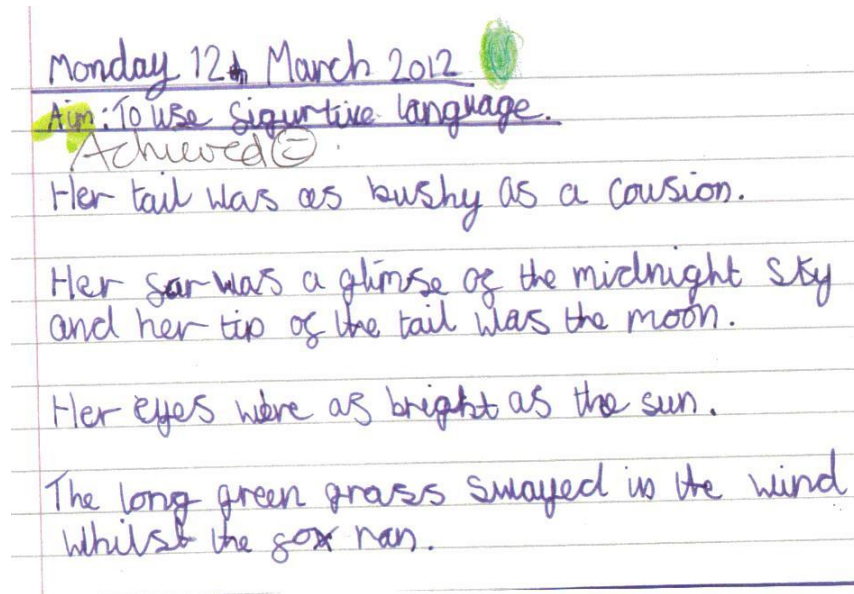 Monday 12th March 2012
Aim: To use figurtive language.
Achieved
Her tail was as bushy as a cousion.
Her fur was a glimse of the midnight sky
and her tip of the tail was the moon.
Her eyes were as bright as the sun.
The long green grass swayed in the wind
whilst the fox ran.